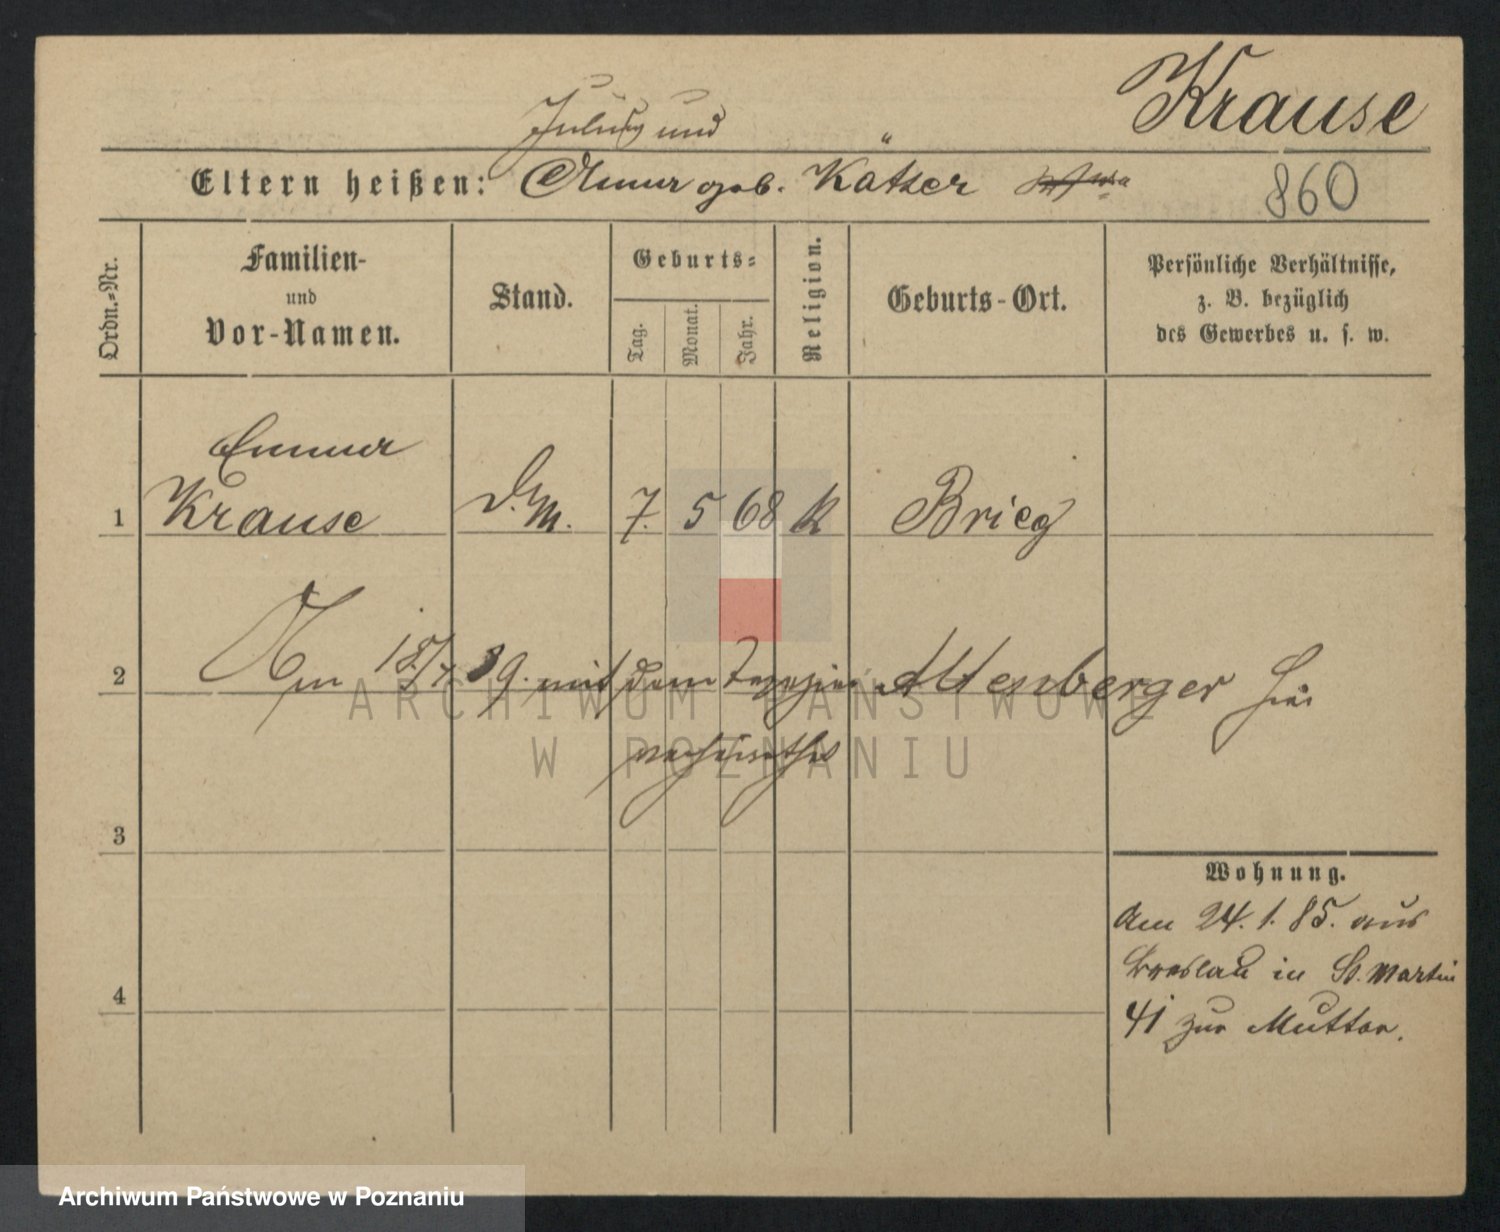 Krause
Julius und
Eltern heißen: Anna geb. Kätzer
860
Ordn.-Nr.
Familien-
und
Vor-Namen.
Stand.
Geburts-
Tag.
Monat.
Jahr.
Religion.
Geburts-Ort.
Persönliche Verhältnisse,
z. B. bezüglich
des Gewerbes u. s. w.
Emma
1 Krause D. M. 7. 5 68 K Brieg
2 Am 15/4 89. mit dem Altenberger hier
ARCHIWUM PAŃSTWOWE
verheirathet
W POZNANIU
3
Wohnung.
Am 24. 1. 85. aus
Breslau in St. Martin
4
41 zur Mutter.
Archiwum Państwowe w Poznaniu